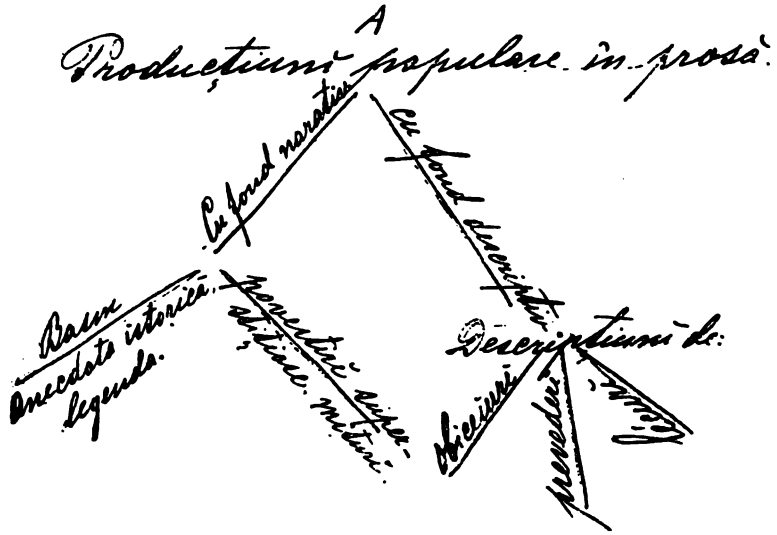 A
Producțiunĭ populare în prosă.
Cu fond narativ
cu fond descriptiv
Basm
Anecdota istorică,
legenda.
povestirĭ super-
stițiase. mituri.
Descripțiunĭ de:
obiceiurĭ
prevederĭ